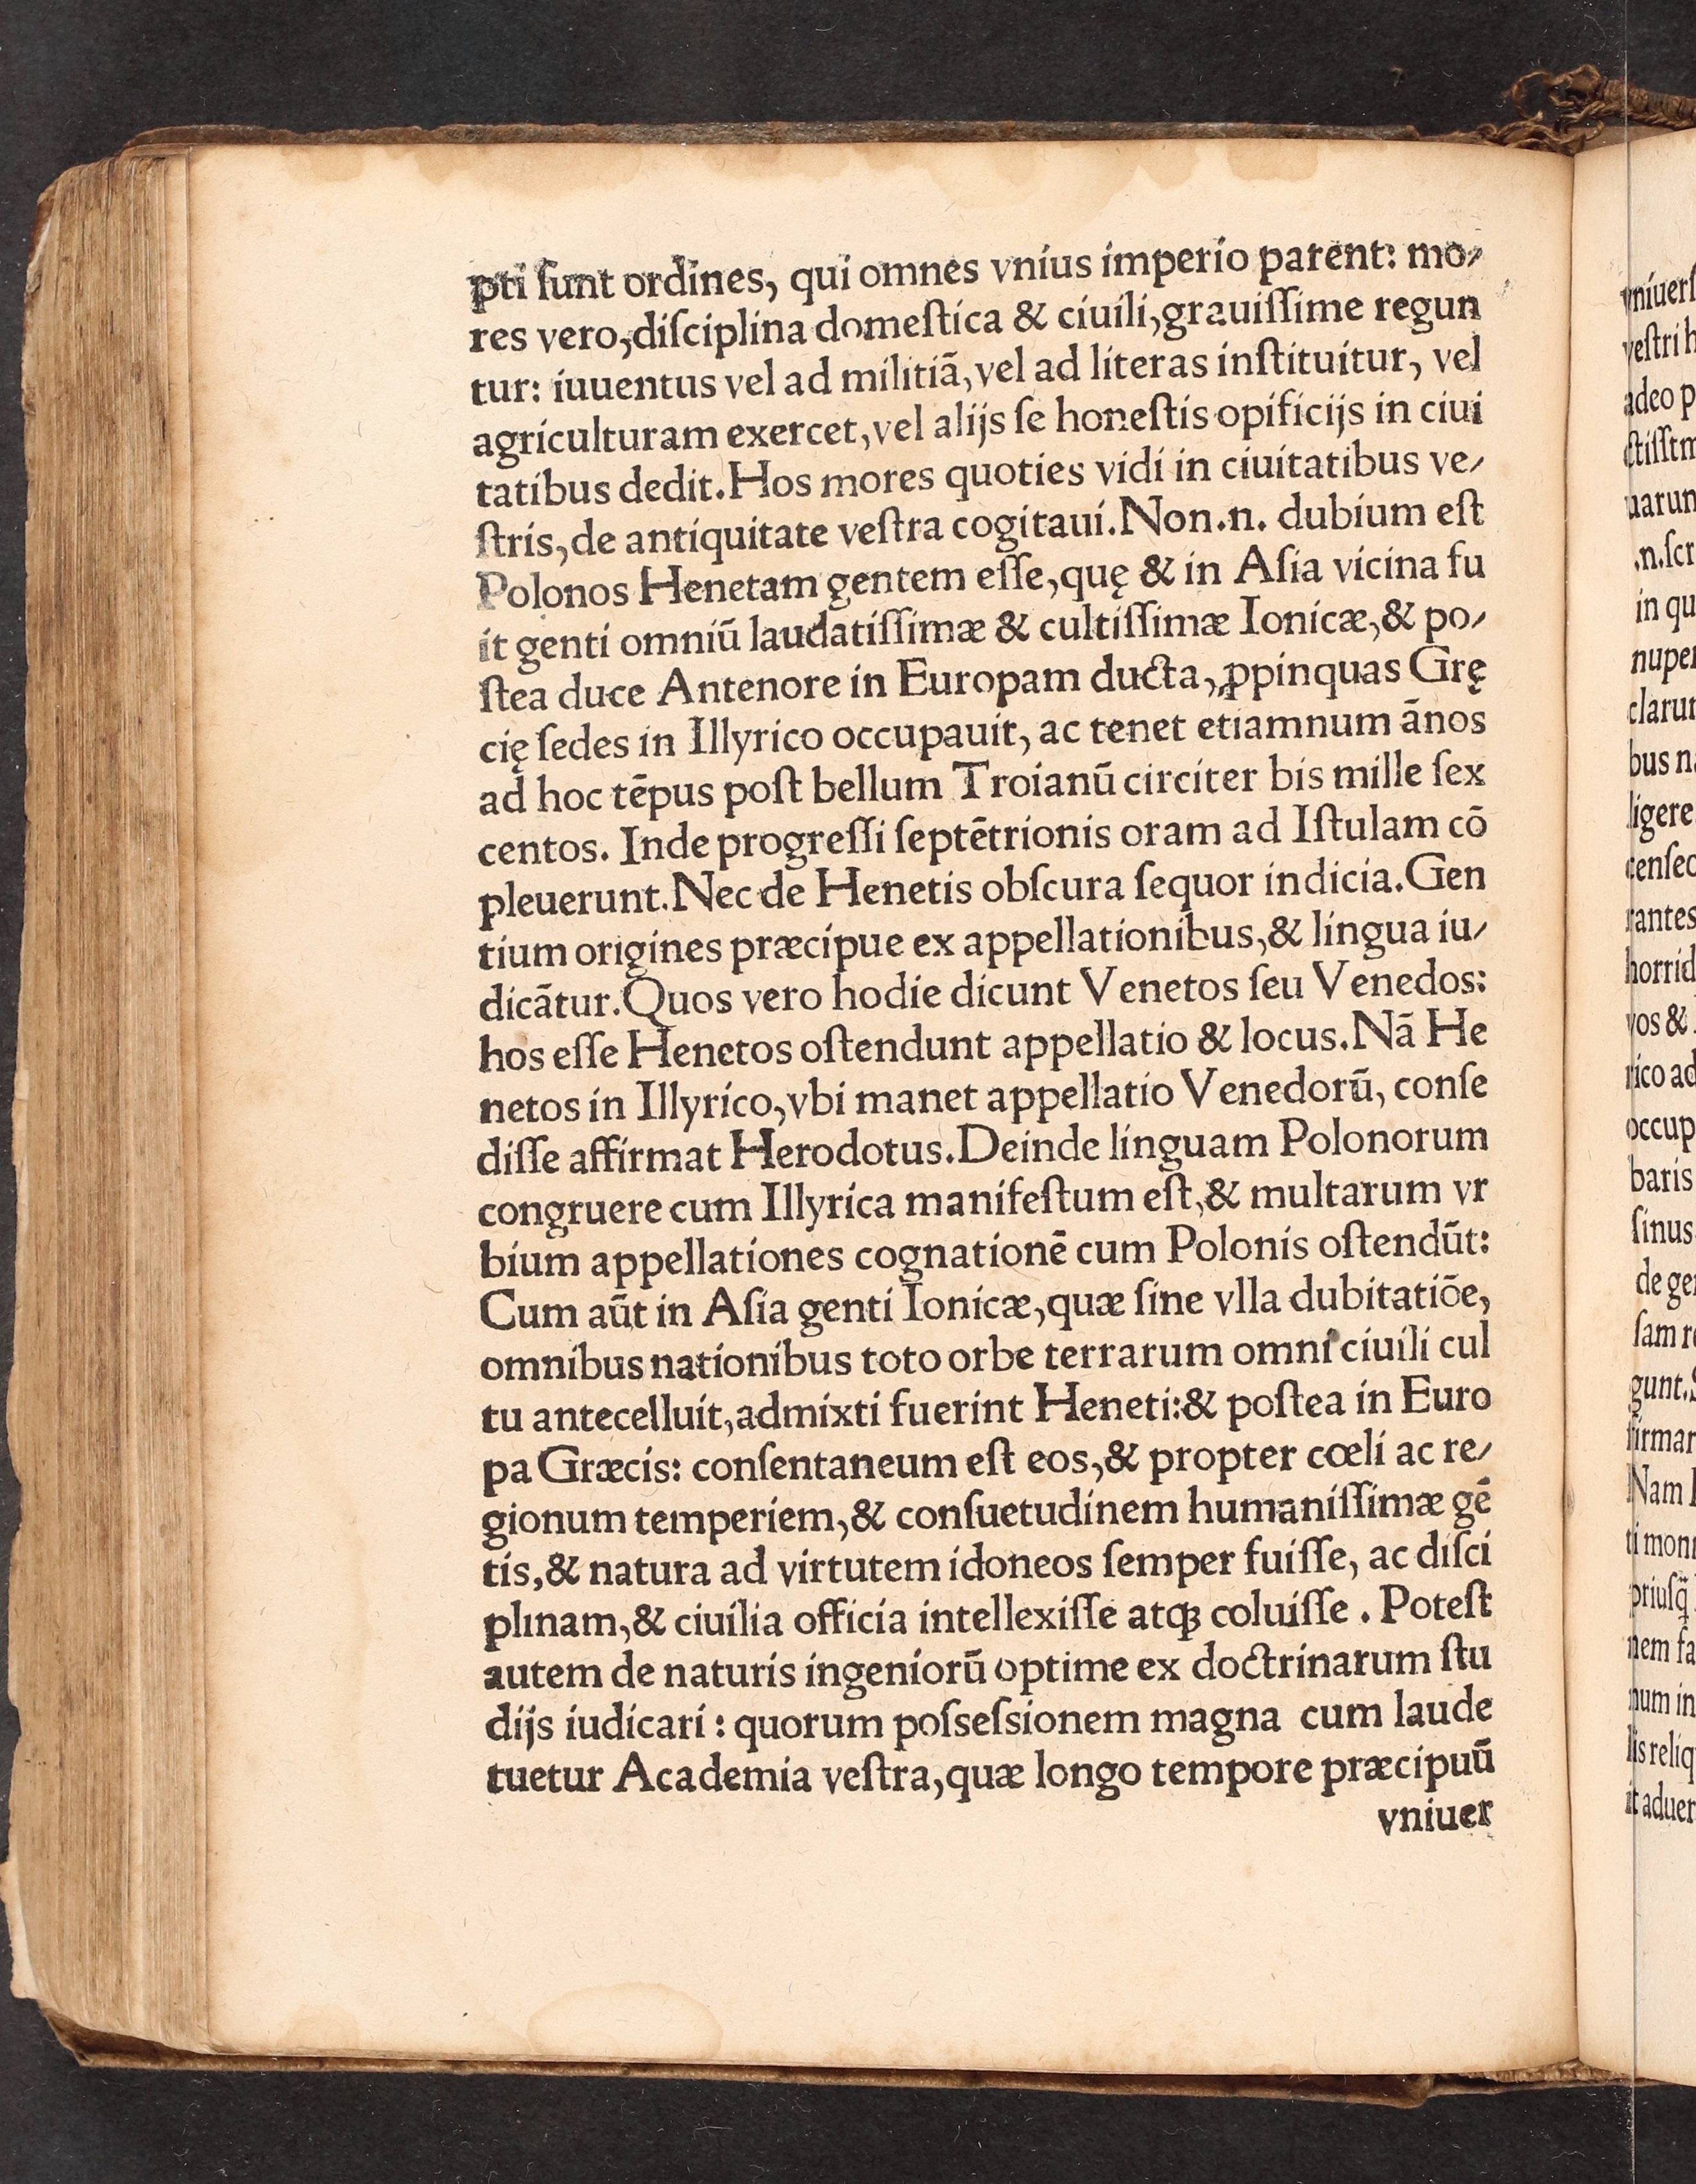 pti ſunt ordines, qui omnes vnius imperio parent: mo⸗
res vero, diſciplina domeſtica & ciuili, grauiſſime regun
tur: iuuentus vel ad militiā, vel ad literas inſtituitur, vel
agriculturam exercet, vel alijs ſe honeſtis opificijs in ciui
tatibus dedit. Hos mores quoties vidi in ciuitatibus ve⸗
ſtris, de antiquitate veſtra cogitaui. Non .n. dubium eſt
Polonos Henetam gentem eſſe, quę & in Aſia vicina fu
it genti omniū laudatiſſimæ & cultiſſimæ Ionicæ, & po⸗
ſtea duce Antenore in Europam ducta, ꝓpinquas Grę
cię ſedes in Illyrico occupauit, ac tenet etiamnum ānos
ad hoc tēpus poſt bellum Troianū circiter bis mille ſex
centos. Inde progreſſi ſeptētrionis oram ad Iſtulam cō
pleuerunt. Nec de Henetis obſcura ſequor indicia. Gen
tium origines præcipue ex appellationibus, & lingua iu⸗
dicātur. Quos vero hodie dicunt Venetos ſeu Venedos:
hos eſſe Henetos oſtendunt appellatio & locus. Nā He
netos in Illyrico, vbi manet appellatio Venedorū, conſe
diſſe affirmat Herodotus. Deinde linguam Polonorum
congruere cum Illyrica manifeſtum eſt, & multarum vr
bium appellationes cognationē cum Polonis oſtendūt:
Cum aūt in Aſia genti Ionicæ, quæ ſine vlla dubitatiōe,
omnibus nationibus toto orbe terrarum omni ciuili cul
tu antecelluit, admixti fuerint Heneti: & poſtea in Euro
pa Græcis: conſentaneum eſt eos, & propter cœli ac re⸗
gionum temperiem, & conſuetudinem humaniſſimæ gē
tis, & natura ad virtutem idoneos ſemper fuiſſe, ac diſci
plinam, & ciuilia officia intellexiſſe atqꝫ coluiſſe. Poteſt
autem de naturis ingeniorū optime ex doctrinarum ſtu
dijs iudicari: quorum poſseſsionem magna cum laude
tuetur Academia veſtra, quæ longo tempore præcipuū
vniuer